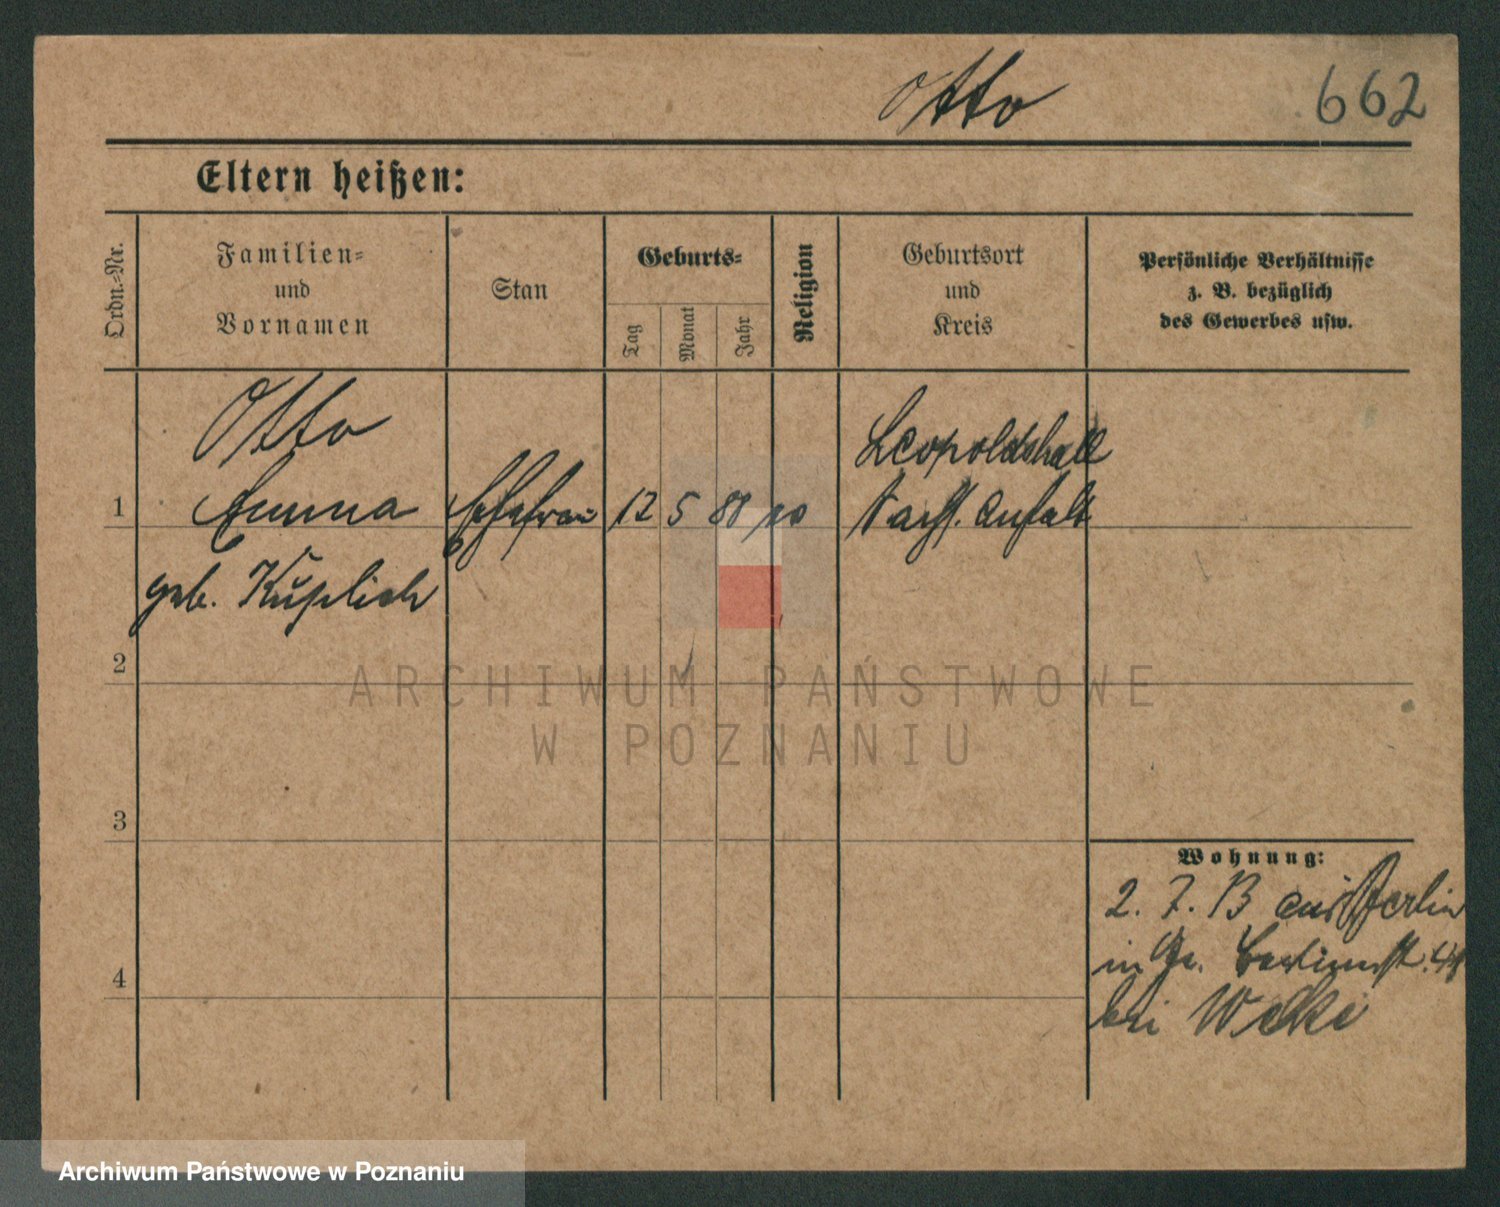 Otto
662
Eltern heißen:
Ordn.-Nr.
Familien-
und
Vornamen
Stan
Geburts-
Tag
Monat
Jahr
Religion
Geburtsort
und
Kreis
Persönliche Verhältnisse
z. B. bezüglich
des Gewerbes usw.
Otto
Leopoldshall
1 Emma Ehefrau 12 5 88 Anhalt
geb. Kuplich
2
ARCHIWUM PAŃSTWOWE
W POZNANIU
3
Wohnung:
2. 7. 13 aus Berlin
in Gr. Berlinerstr.
4
bei
Archiwum Państwowe w Poznaniu